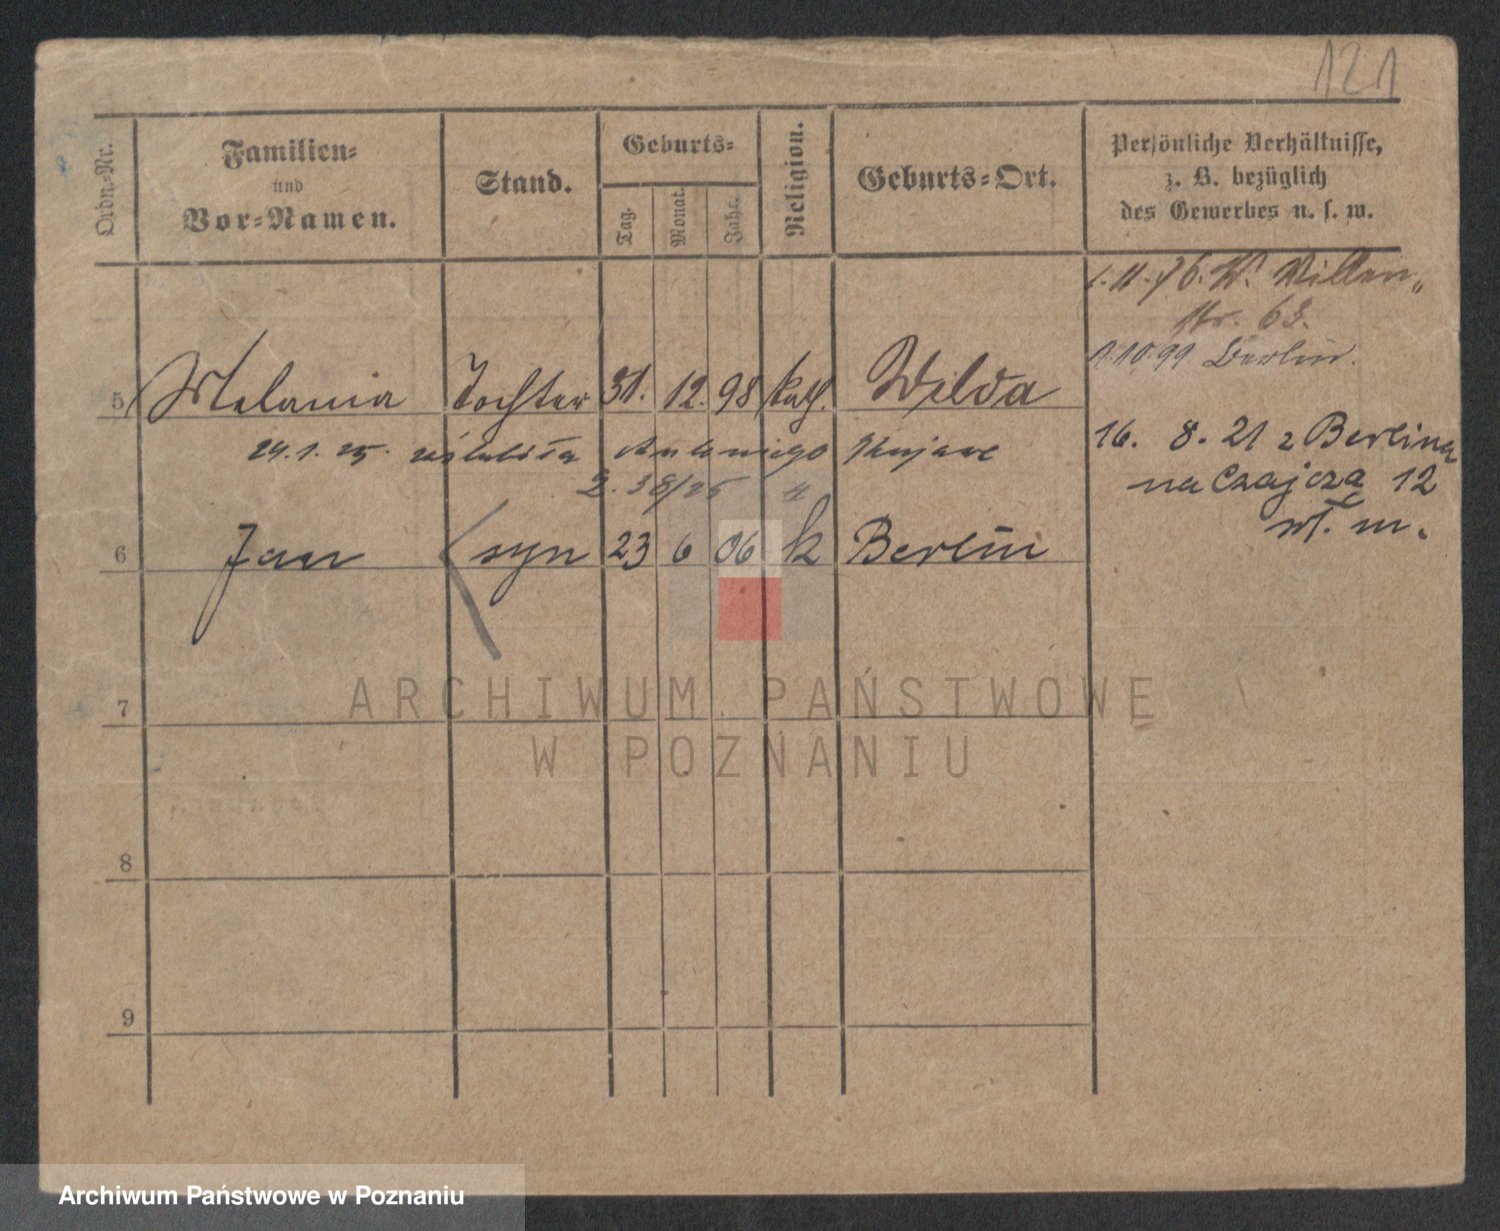 121
Ordn.-Nr.
Familien-
und
Vor-Namen.
Stand.
Geburts-
Tag.
Monat.
Jahr.
Religion.
Geburts-Ort.
Persönliche Verhältnisse,
z. B. bezüglich
des Gewerbes u. s. w.
W. Villen-
str. 63.
1.10.99 Berlin.
5 Melania Tochter 31. 12. 98 kath. Wilda
29.1.25. Antoniego
16. 8. 21 z Berlina
na Czajczą 12
wł. m.
6 Jan syn 23 6 06 k Berlin
7
8
9
ARCHIWUM PAŃSTWOWE
W POZNANIU
Archiwum Państwowe w Poznaniu